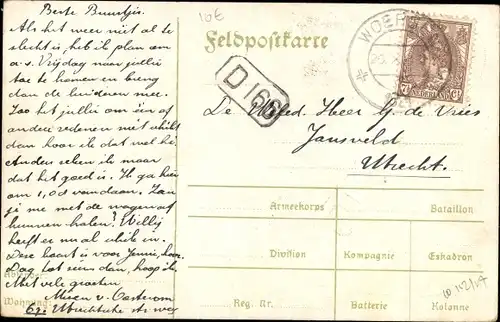 Beste Buurtjes.
Als het weer niet al te
slecht is, heb ik plan om
a.s. Vrijdag naar jullie
toe te komen en breng
dan de kinderen mee.
Zoo het jullie om één of
andere redenen niet schikt
dan hoor ik dat wel he.
Anders reken ik maar
dat het goed is. Ik ga hier
om 1,00 vandaan. Zou
je me met de wagen af
kunnen halen? Willy
heeft er nu al schik in.
Deze kaart is voor Jennie, hoor.
Dag tot ziens dan, hoop ik.
Met vele groeten
van Oosterom
Utrechtsche
16€
Feldpostkarte
D 166
WOER
7½ Ct
NEDERLAND
De Heer G. de Vries
Jansveld
Utrecht.
Armeekorps
Bataillon
Division
Kompagnie
Eskadron
Reg. Nr.
Batterie
Kolonne
Absender:
Wohnung: